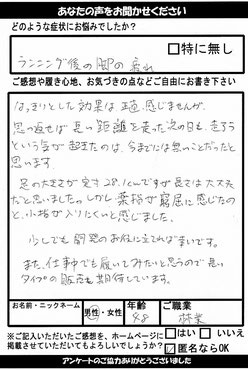 あなたの声をお聞かせください
どのような症状にお悩みでしたか?
□特に無し
ランニング後の脚の疲れ
ご感想や履き心地、お気づきの点などご自由にお書き下さい
はっきりとした効果は 感じませんが
思い返せば 長い距離を走った次の日も、走ろう
という気が起きたのは、今までには無いことだったと
思います。
足の大きさが実寸28.1cmですが長さは大丈夫
だと思いました。しかし 窮屈に感じたの
と、小指が入りにくいと感じました。
少しでも開発のお役に立てれば幸いです。
また、仕事中でも履いてみたいと思うので長い
タイプの販売も期待しています。
お名前・ニックネーム
男性・女性
年齢
48
ご職業
※ご記入いただいたご感想を、ホームページに
掲載させていただいてもよろしいでしょうか?
□はい □いいえ
☑匿名ならOK
アンケートのご協力ありがとうございました